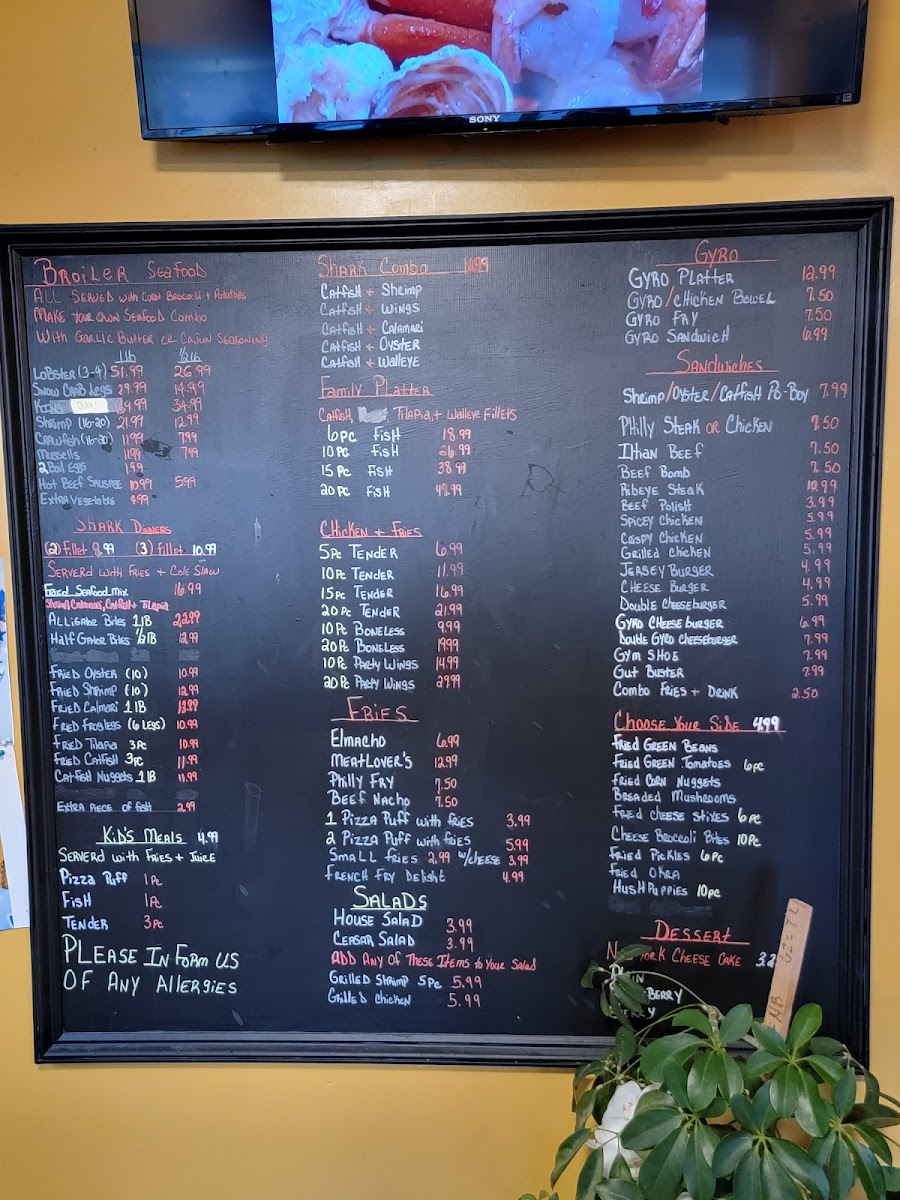 SONY
Broiler Seafood
All Served with Corn Broccoli + Potatoes
Make your own Seafood Combo
With Garlic Butter or Cajun Seasoning
1 lb 1/2 lb
Lobster (3-4) 51.99 26.99
Snow Carb Legs 29.99 14.99
34.99
Shrimp (16-20) 21.99 12.99
Crawfish (16-20) 11.99 7.99
Mussells 11.99 7.99
2 Boil Eggs 1.99
Hot Beef Sausage 10.99 5.99
Extra Vegetable
Shark Dinners
(2) Fillet 8.99 (3) Fillet 10.99
Serverd with Fries + Cole Slaw
Fried Seafood Mix 16.99
Shrimp, Calamari, Catfish + Tilapia
Alligator Bites 1 lB 22.99
Half Gator Bites 1/2 lB 12.99
Fried Oyster (10) 10.99
Fried Shrimp (10) 12.99
Fried Calmari 1 lB
Fried Froglegs (6 Legs) 10.99
Fried Tilapia 3 Pc 10.99
Fried Catfish 3 Pc 11.99
Catfish Nuggets 1 lB 11.99
Extra Piece of Fish 2.99
Kid's Meals 4.99
Serverd with Fries + Juice
Pizza Puff 1 Pc
Fish 1 Pc
Tender 3 Pc
Please In Form Us
Of Any Allergies
Shark Combo 10.99
Catfish + Shrimp
Catfish + Wings
Catfish + Calamari
Catfish + Oyster
Catfish + Walleye
Family Platter
Catfish, Tilapia, + Walleye Fillets
6 pc Fish 18.99
10 pc Fish 26.99
15 pc Fish 38.99
20 pc Fish 48.99
Chicken + Fries
5 Pc Tender 6.99
10 Pc Tender 11.99
15 Pc Tender 16.99
20 Pc Tender 21.99
10 Pc Boneless 9.99
20 Pc Boneless 19.99
10 Pc Party Wings 14.99
20 Pc Party Wings 27.99
Fries
Elmacho 6.99
Meatlover's 12.99
Philly Fry 7.50
Beef Nacho 7.50
1 Pizza Puff with fries 3.99
2 Pizza Puff with fries 5.99
Small fries 2.99 w/cheese 3.99
French Fry Delight 4.99
Salads
House Salad 3.99
Ceasar Salad 3.99
Add Any of These Items to Your Salad
Grilled Shrimp 5pc 5.99
Grilled Chicken 5.99
Gyro
Gyro Platter 12.99
Gyro/Chicken Bowel 7.50
Gyro Fry 7.50
Gyro Sandwich 6.99
Sandwiches
Shrimp/Oyster/Catfish Po-Boy 7.99
Philly Steak or Chicken 7.50
Ithan Beef 7.50
Beef Bomb 7.50
Ribeye Steak 10.99
Beef Polish 3.99
Spicey Chicken 5.99
Crispy Chicken 5.99
Grilled Chicken 5.99
Jersey Burger 4.99
Cheese Burger 4.99
Double Cheeseburger 5.99
Gyro Cheeseburger 6.99
Double Gyro Cheeseburger 7.99
Gym Shoe 7.99
Gut Buster 7.99
Combo Fries + Drink 2.50
Choose Your Side 4.99
Fried Green Beans
Fried Green Tomatoes 6pc
Fried Corn Nuggets
Breaded Mushrooms
Fried Cheese Stixes 6pc
Cheese Broccoli Bites 10pc
Fried Pickles 6pc
Fried Okra
Hush Puppies 10pc
Dessert
York Cheese Cake